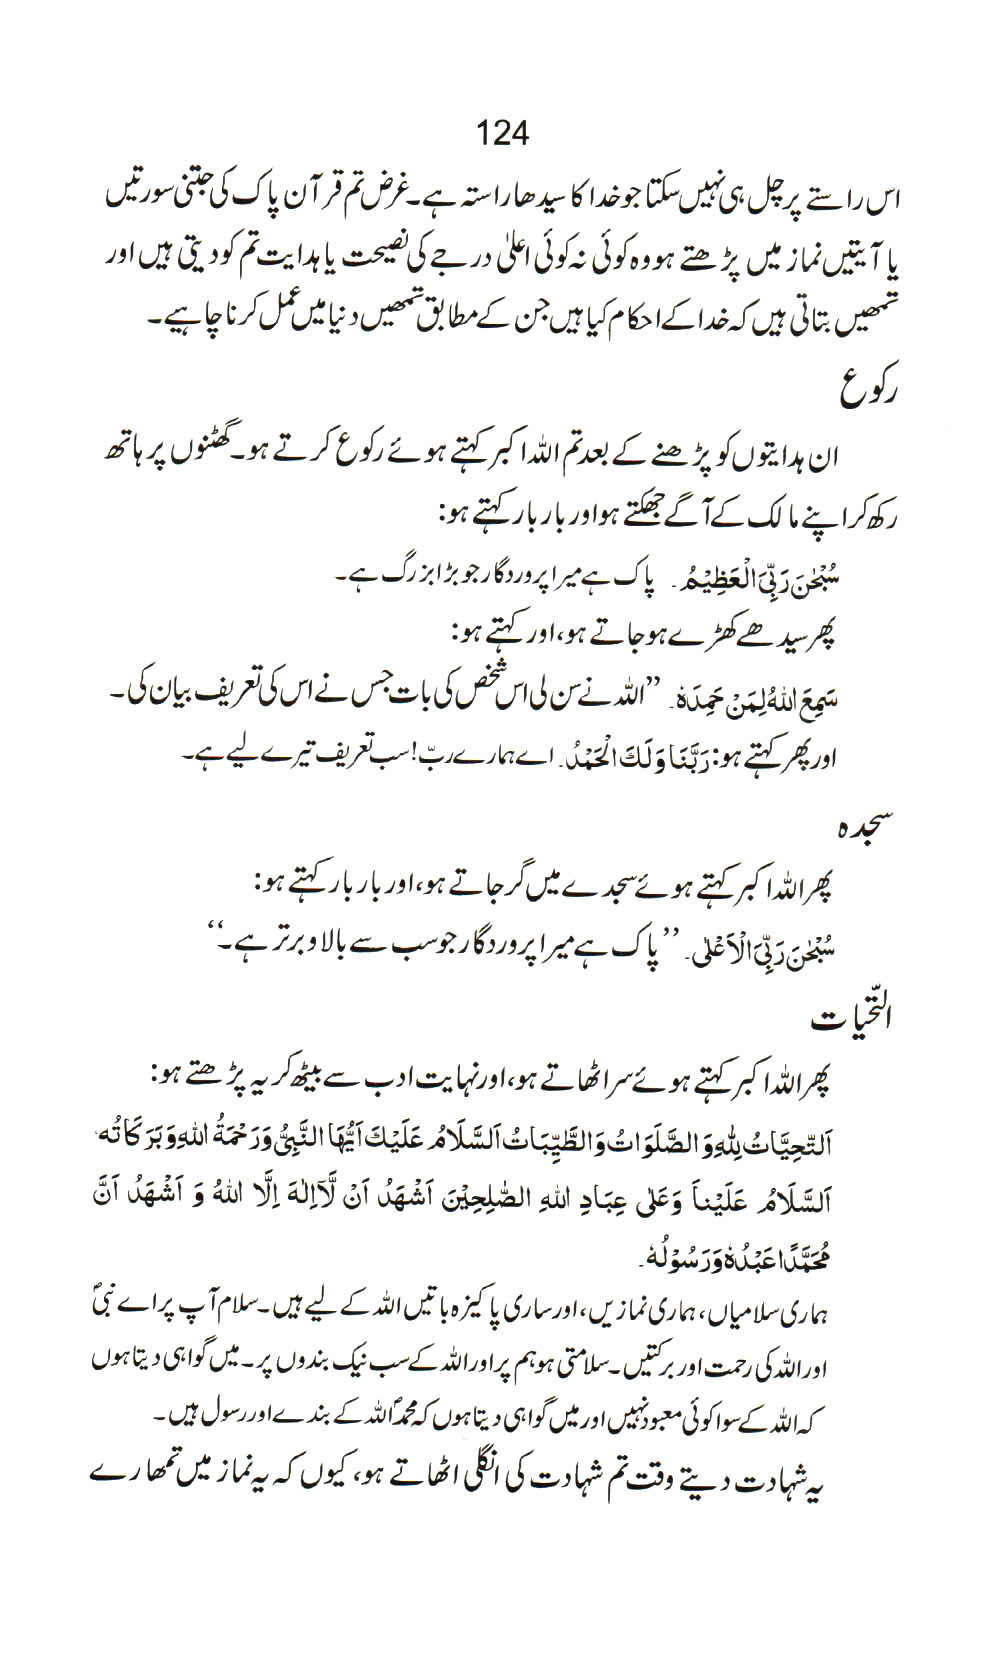 124
اس راستے پر چل ہی نہیں سکتا جو خدا کا سیدھا راستہ ہے۔ غرض تم قرآن پاک کی جتنی سورتیں
یا آیتیں نماز میں پڑھتے ہو وہ کوئی نہ کوئی اعلیٰ درجے کی نصیحت یا ہدایت تم کو دیتی ہیں اور
تمھیں بتاتی ہیں کہ خدا کے احکام کیا ہیں جن کے مطابق تمھیں دنیا میں عمل کرنا چاہیے۔
رکوع
ان ہدایتوں کو پڑھنے کے بعد تم اللہ اکبر کہتے ہوئے رکوع کرتے ہو۔ گھٹنوں پر ہاتھ
رکھ کر اپنے مالک کے آگے جھکتے ہو اور بار بار کہتے ہو:
سُبْحٰنَ رَبِّیَ الْعَظِیْمُ۔ پاک ہے میرا پروردگار جو بڑا بزرگ ہے۔
پھر سیدھے کھڑے ہو جاتے ہو، اور کہتے ہو:
سَمِعَ اللهُ لِمَنْ حَمِدَهٗ۔ ”اللہ نے سن لی اس شخص کی بات جس نے اس کی تعریف بیان کی۔
اور پھر کہتے ہو: رَبَّنَا وَلَكَ الْحَمْدُ۔ اے ہمارے ربّ! سب تعریف تیرے لیے ہے۔
سجدہ
پھر اللہ اکبر کہتے ہوئے سجدے میں گر جاتے ہو، اور بار بار کہتے ہو:
سُبْحٰنَ رَبِّیَ الْاَعْلٰی۔ ’’پاک ہے میرا پروردگار جو سب سے بالا و برتر ہے۔‘‘
التّحیات
پھر اللہ اکبر کہتے ہوئے سر اٹھاتے ہو، اور نہایت ادب سے بیٹھ کر یہ پڑھتے ہو:
اَلتَّحِیَّاتُ لِلّٰهِ وَالصَّلَوَاتُ وَالطَّیِّبَاتُ اَلسَّلَامُ عَلَیْكَ اَیُّهَا النَّبِیُّ وَرَحْمَةُ اللهِ وَبَرَكَاتُه،
اَلسَّلَامُ عَلَیْناَ وَعَلٰی عِبَادِ اللهِ الصّٰلِحِیْنَ اَشْهَدُ اَنْ لَّآاِلٰهَ اِلَّا اللهُ وَ اَشْهَدُ اَنَّ
مُحَمَّدًا عَبْدُهٗ وَرَسُوْلُهٗ۔
ہماری سلامیاں، ہماری نمازیں، اور ساری پاکیزہ باتیں اللہ کے لیے ہیں۔ سلام آپ پر اے نبیؐ
اور اللہ کی رحمت اور برکتیں۔ سلامتی ہو ہم پر اور اللہ کے سب نیک بندوں پر۔ میں گواہی دیتا ہوں
کہ اللہ کے سوا کوئی معبود نہیں اور میں گواہی دیتا ہوں کہ محمدؐ اللہ کے بندے اور رسول ہیں۔
یہ شہادت دیتے وقت تم شہادت کی انگلی اٹھاتے ہو، کیوں کہ یہ نماز میں تمھارے